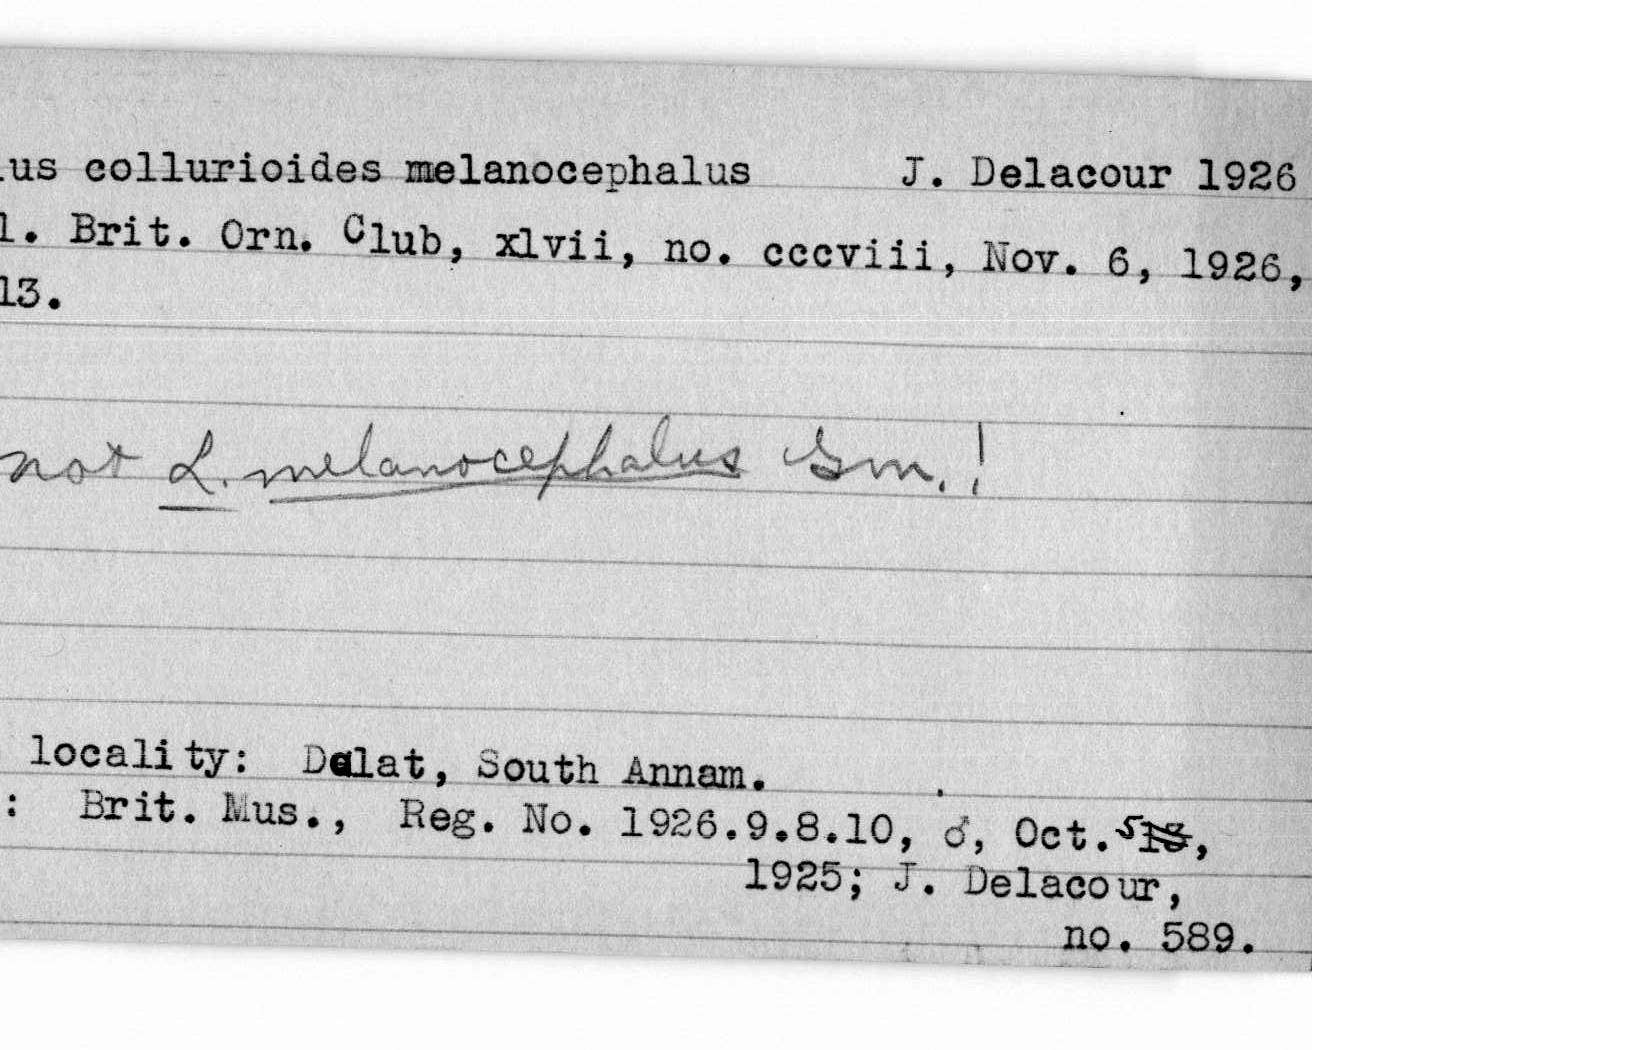 us collurioides melanocephalus J. Delacour 1926
l. Brit. Orn. Club, xlvii, no. cccviii, Nov. 6, 1926,
13.
not L. melanocephalus Gm.!
locality: Dalat, South Annam.
: Brit. Mus., Reg. No. 1926.9.8.10, ♂, Oct. 5,
1925; J. Delacour,
no. 589.